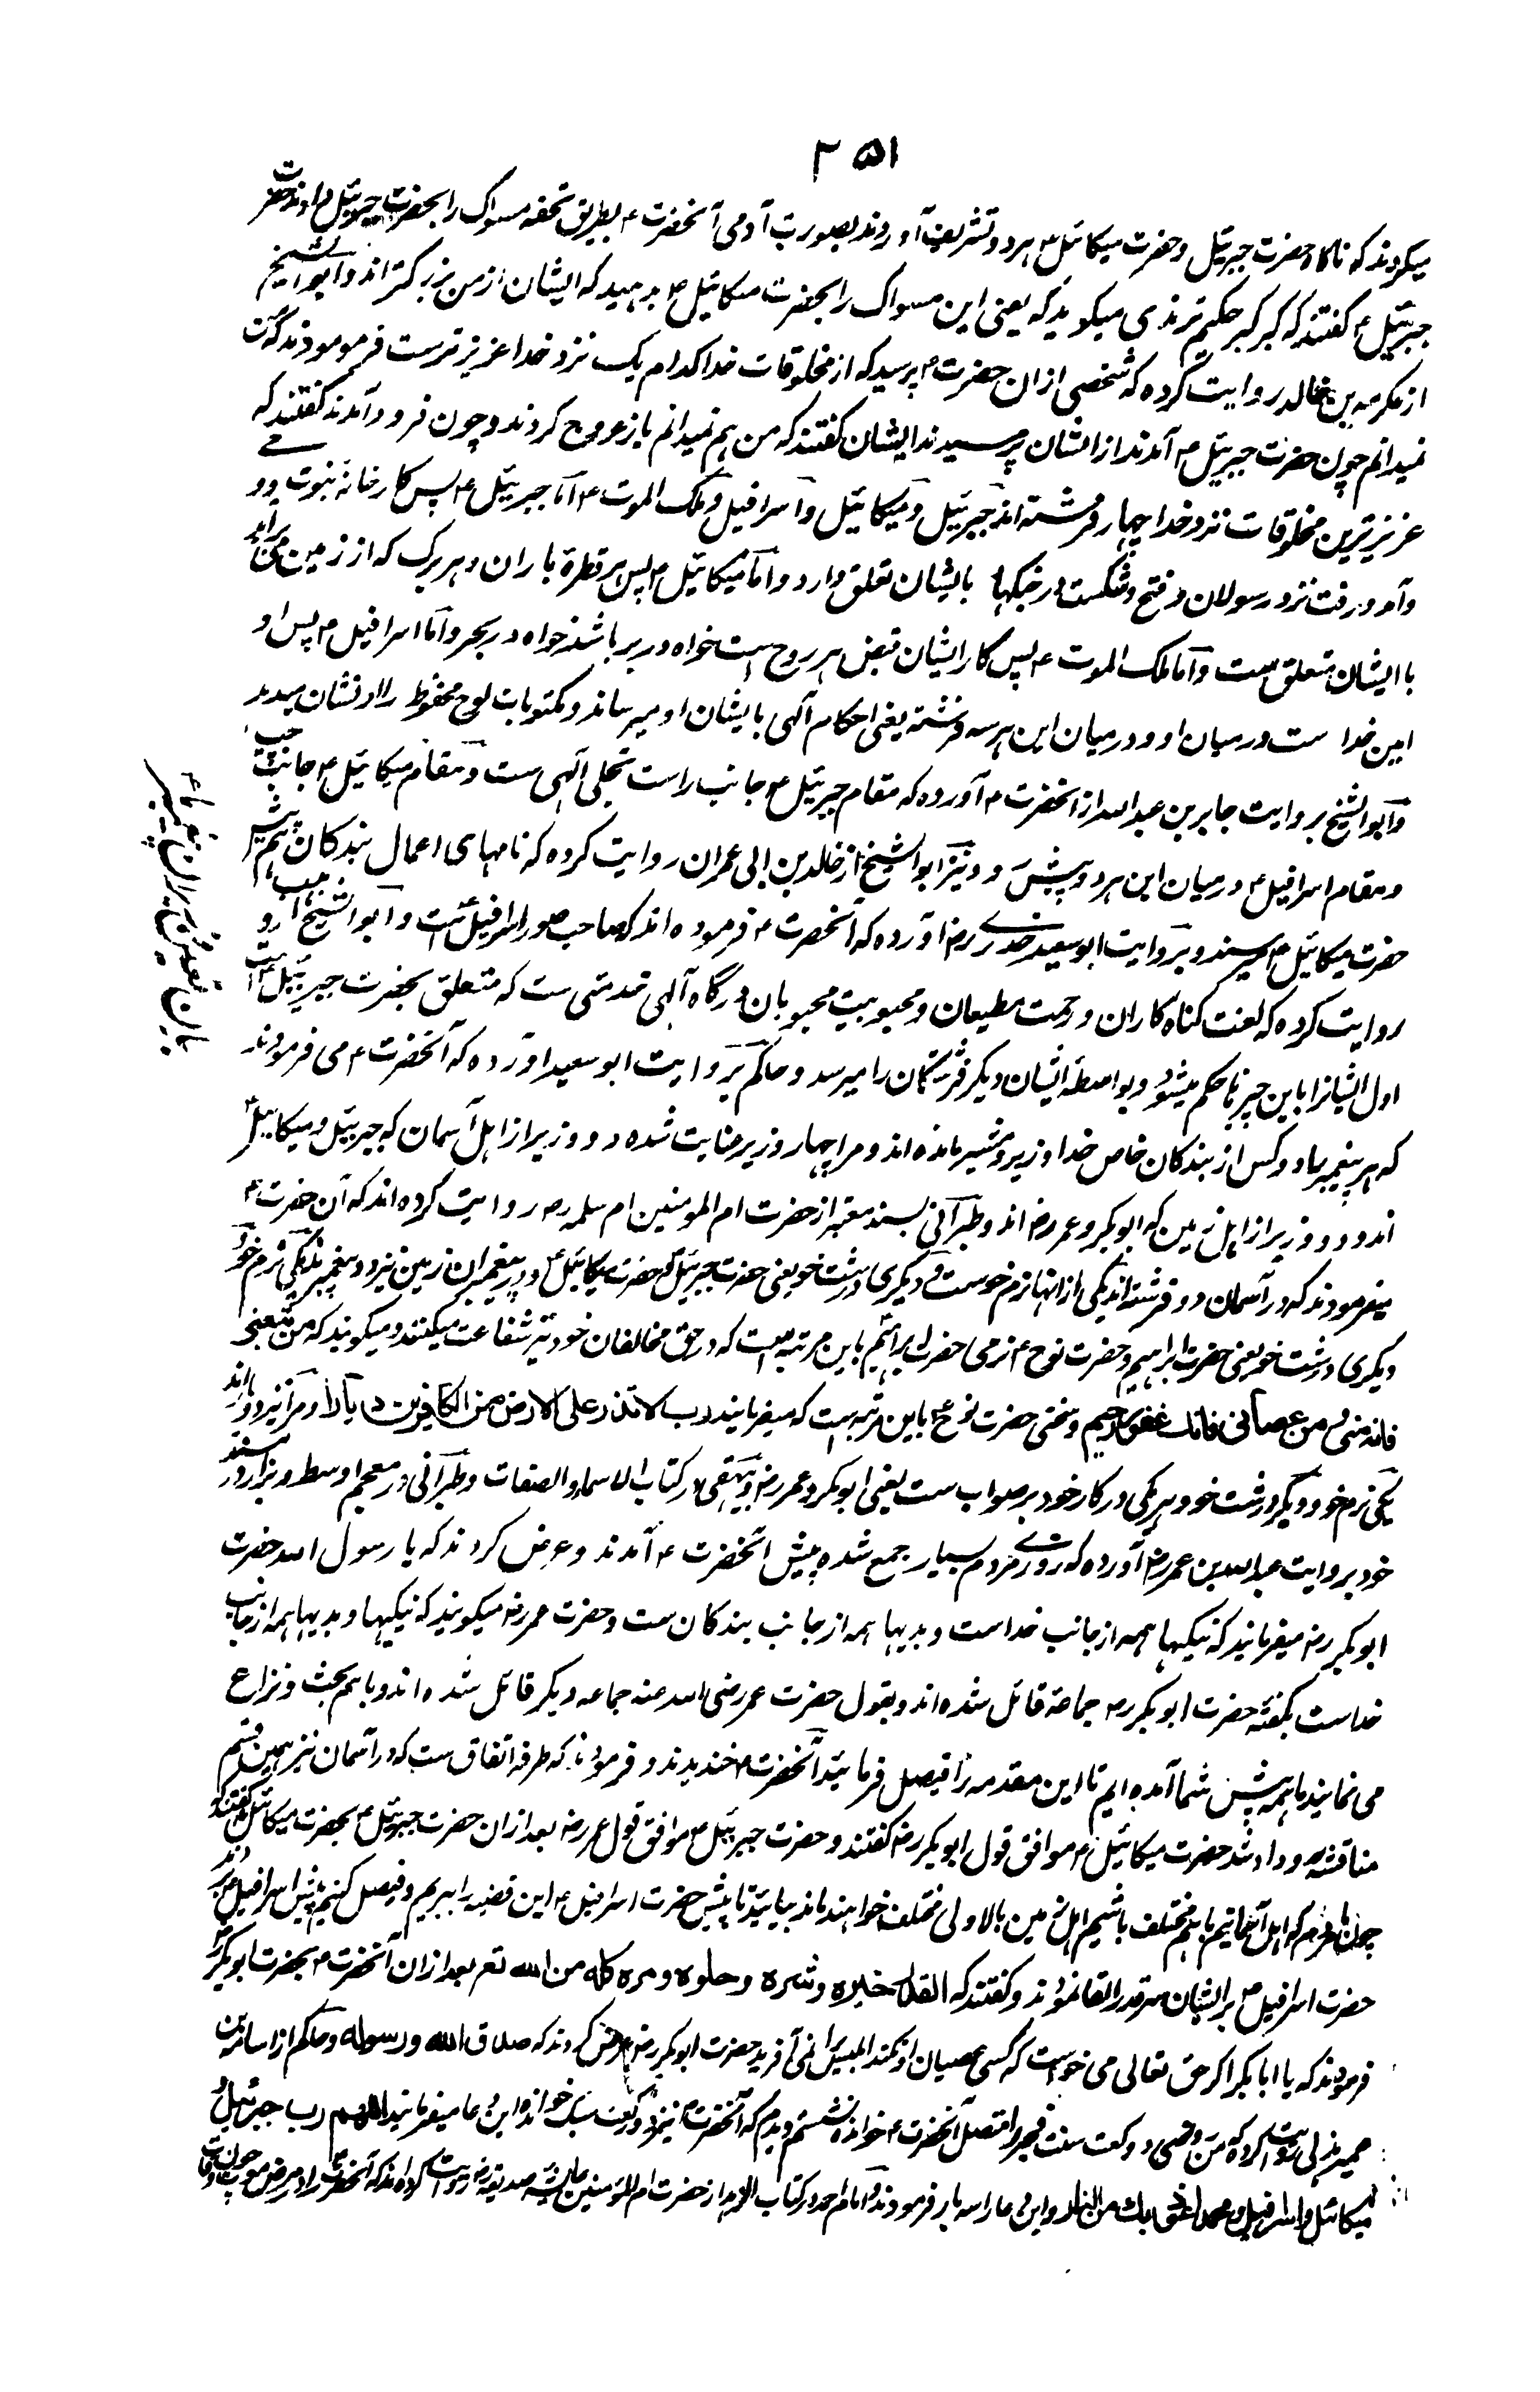 ۳۵۱
میکردند که ناگاه حضرت جبرئیل و حضرت میکائیل ۴ هر دو تشریف آوردند بصورت آدمی آنحضرت ۴ بطریق تحفه مسواک را بحضرت جبرئیل ۴ دادند حضرت
جبرئیل ۴ گفتند که کبر کبر حکیم ترمذی میگوید که یعنی این مسواک را بحضرت میکائیل ۴ بدهید که ایشان از من بزرگتر اند و ابو الشیخ
از عکرمه بن خالد روایت کرده که شخصی از ان حضرت ۴ پرسید که از مخلوقات خدا کدام یک نزد خدا عزیز ترست فرمودند که من
نمیدانم چون حضرت جبرئیل ۴ آمدند از ایشان پرسیدند ایشان گفتند که من هم نمیدانم باز عروج کردند و چون فرود آمدند گفتند که
عزیز ترین مخلوقات نزد خدا چهار فرشته اند جبرئیل و میکائیل و اسرافیل و ملک الموت ۴ اما جبرئیل ۴ پس کارخانه نبوت و وحی
و آمد و رفت نزد رسولان و فتح و شکست در جنگها بایشان تعلق دارد و اما میکائیل ۴ پس هر قطره باران و هر برگ که از زمین می براید
با ایشان متعلق ست و اما ملک الموت ۴ پس کار ایشان قبض هر روح ست خواه در بر باشد خواه در بحر و اما اسرافیل ۴ پس او
امین خدا ست درمیان او و درمیان این هر سه فرشته یعنی احکام آلهی بایشان او میرساند و مکتوبات لوح محفوظ را او نشان میدهد
و ابو الشیخ بروایت جابر بن عبدالله از انحضرت ۴ آورده که مقام جبرئیل ۴ جانب راست تجلی آلهی ست و مقام میکائیل ۴ جانب چپ
و مقام اسرافیل ۴ درمیان این هر دو پیش و نیز ابو الشیخ از خالد بن ابی عمران روایت کرده که نامهای اعمال بندگان هم پیش
حضرت میکائیل ۴ میرسند و بروایت ابو سعید خدری رض آورده که آنحضرت ۴ فرموده اند که صاحب صور اسرافیل ست و ابو الشیخ از وهب
روایت کرده که لعنت گناه کاران و رحمت مطیعان و محبوبیت محبوبان درگاه آلهی خدمتی ست که متعلق بحضرت جبرئیل ۴ است
اول ایشانرا باین چیزها حکم میشود و بواسطه ایشان دیگر فرشتگان را میرسد و حاکم بروایت ابو سعید آورده که آنحضرت ۴ می فرمودند
که هر پیغمبر را دو کس از بندگان خاص خدا وزیر و مشیر مانده اند و مرا چهار وزیر عنایت شده دو وزیر از اهل آسمان که جبرئیل و میکائیل
اند و دو وزیر از اهل زمین که ابو بکر و عمر رض اند و طبرانی بسند معتبر از حضرت ام المومنین ام سلمه رض روایت کرده اند که آن حضرت ۴
میفرمودند که در آسمان دو فرشته اند یکی از انها نرم خوست و دیگری درشت خو یعنی حضرت جبرئیل ۴ و حضرت میکائیل ۴ و در پیغمبران زمین نیز دو پیغمبر اند یکی نرم خو و
دیگری درشت خو یعنی حضرت ابراهیم و حضرت نوح ۴ نرمی حضرت ابراهیم باین مرتبه ست که در حق مخالفان خود نیز شفاعت میکنند و میگویند که من تبعنی
فانه منی و من عصانی فانک غفور رحیم و سختی حضرت نوح ۴ باین مرتبه است که میفرمایند رب لا تذر علی الارض من الکافرین دیارا و مرا نیز دو یار اند
یکی نرم خو و دیگر درشت خو و هر یکی در کار خود بر صواب ست یعنی ابو بکر و عمر رض و بیهقی در کتاب الاسماء و الصفات و طبرانی در معجم اوسط و بزار در مسند
خود بروایت عبدالله بن عمر رض آورده که روزی مردم بسیار جمع شده پیش انحضرت ۴ آمدند و عرض کردند که یا رسول الله حضرت
ابو بکر رض میفرمایند که نیکیها همه از جانب خداست و بدیها همه از جانب بندگان ست و حضرت عمر رض میگویند که نیکیها و بدیها همه از جانب
خداست بگفته حضرت ابو بکر رض جماعه قائل شده اند و بقول حضرت عمر رضی الله عنه جماعه دیگر قائل شده اند و باهم بحث و نزاع
می نمایند ما همه پیش شما آمده ایم تا این مقدمه را فیصل فرمائید آنحضرت ۴ خندیدند و فرمودند که طرفه اتفاق ست که در آسمان نیز همین قسم
مناقشه رو داد شد حضرت میکائیل ۴ موافق قول ابو بکر رض گفتند و حضرت جبرئیل ۴ موافق قول عمر رض بعد ازان حضرت جبرئیل ۴ بحضرت میکائیل گفتند که
چون ما مردم که اهل آسمانیم باهم مختلف باشیم اهل زمین بالاولی مختلف خواهند ماند بیائید تا پیش حضرت اسرافیل ۴ این قضیه را ببریم و فیصل کنیم پیش اسرافیل ۴
حضرت اسرافیل ۴ بر ایشان سر قدر القا نمودند و گفتند که القدر خیره و شره و حلوه و مره کله من الله تعم بعد ازان آنحضرت ۴ بحضرت ابو بکر رض
فرمودند که یا ابا بکر اگر حق تعالی می خواست که کسی عصیان او نکند ابلیس را نمی آفرید حضرت ابو بکر رض عرض کردند که صدق الله و رسوله و حاکم از اسامه بن
عمیر هذلی روایت کرده که من وقتی دو رکعت سنت فجر را متصل آنحضرت ۴ خوانده نشستم دیدم که آنحضرت ۴ نیز دو رکعت سبک خوانده این دعا میفرمایند اللهم رب جبرئیل و
میکائیل و اسرافیل و محمد اعوذ بک من النار و این دعا را سه بار فرمودند و امام احمد در کتاب الزهد از حضرت ام المؤمنین عایشه صدیقه رض روایت کرده اند که آنحضرت ۴ را در مرض موت چون
بیان تعداد وزیران پیغمبر ما ۴